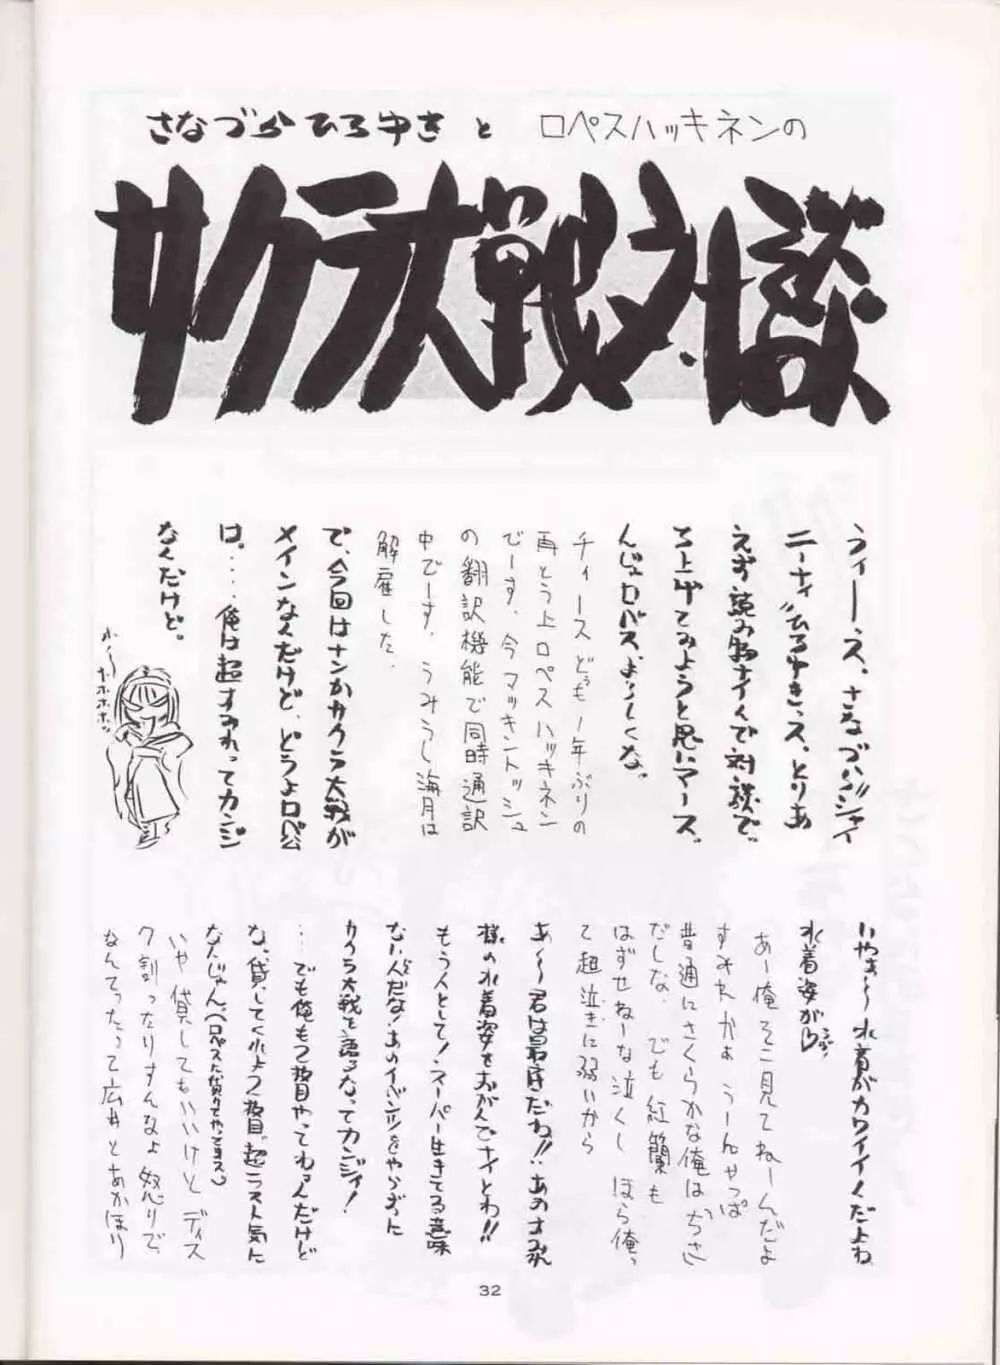 さなづらひろゆきと ロペスハッキネンの
サクラ大戦対談
うぃーース、さなづバジャイ
ニーナイ"ひろゆきっス、とりあ
えず読み物ナイんで対談で。
ち上げてみようと思いマース。
んじゃロペス、よろしくな。
チィースどぅも1年ぶりの
再とう上ロペスハッキネン
でーす。今マッキントッシュ
の翻訳機能で同時通訳
中でーす。うみうし海月は
解雇した。
で、今回はナンかサクラ大戦が
メインなんだけど、どうよロペ公
は。‥‥俺は超すみれってカンジ
なんだけど。
ホ〜ホホホホッ
いやぁ〜水着がカワイイんだよね
水着姿が♡
あー俺そこ見てねーんだよ
すみれかぁ うーんやっぱ
普通にさくらかな俺は
だしな。でも紅蘭も
はずせねーな泣くし ほら俺っ
て超泣きに弱いから
あ〜〜君は最低だね!!あのすみれ
様の水着姿をおがんでナイとわ!!
もう人として!スーパー生きてる意味
ない人だな!あのイベントをやらずに
サクラ大戦を語るなってカンジィ!
‥‥でも俺も2枚目やってねぇんだけど
な、貸してくれよ2枚目。超ラスト気に
なんじゃん、
いや貸してもいいけど ディス
ク割ったりすんなよ 怒りで
なんてったって広井とあかほり
32